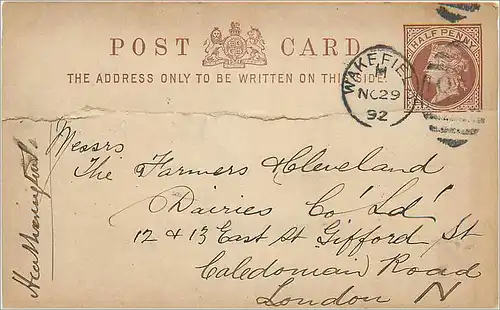 POST CARD
HALF PENNY
THE ADDRESS ONLY TO BE WRITTEN ON THIS SIDE.
WAKEFIELD
M
NO 29
92
Messrs
The Farmers & Cleveland
Dairies Co' Ld'
12 & 13 East St Gifford St
Caledonian Road
London N